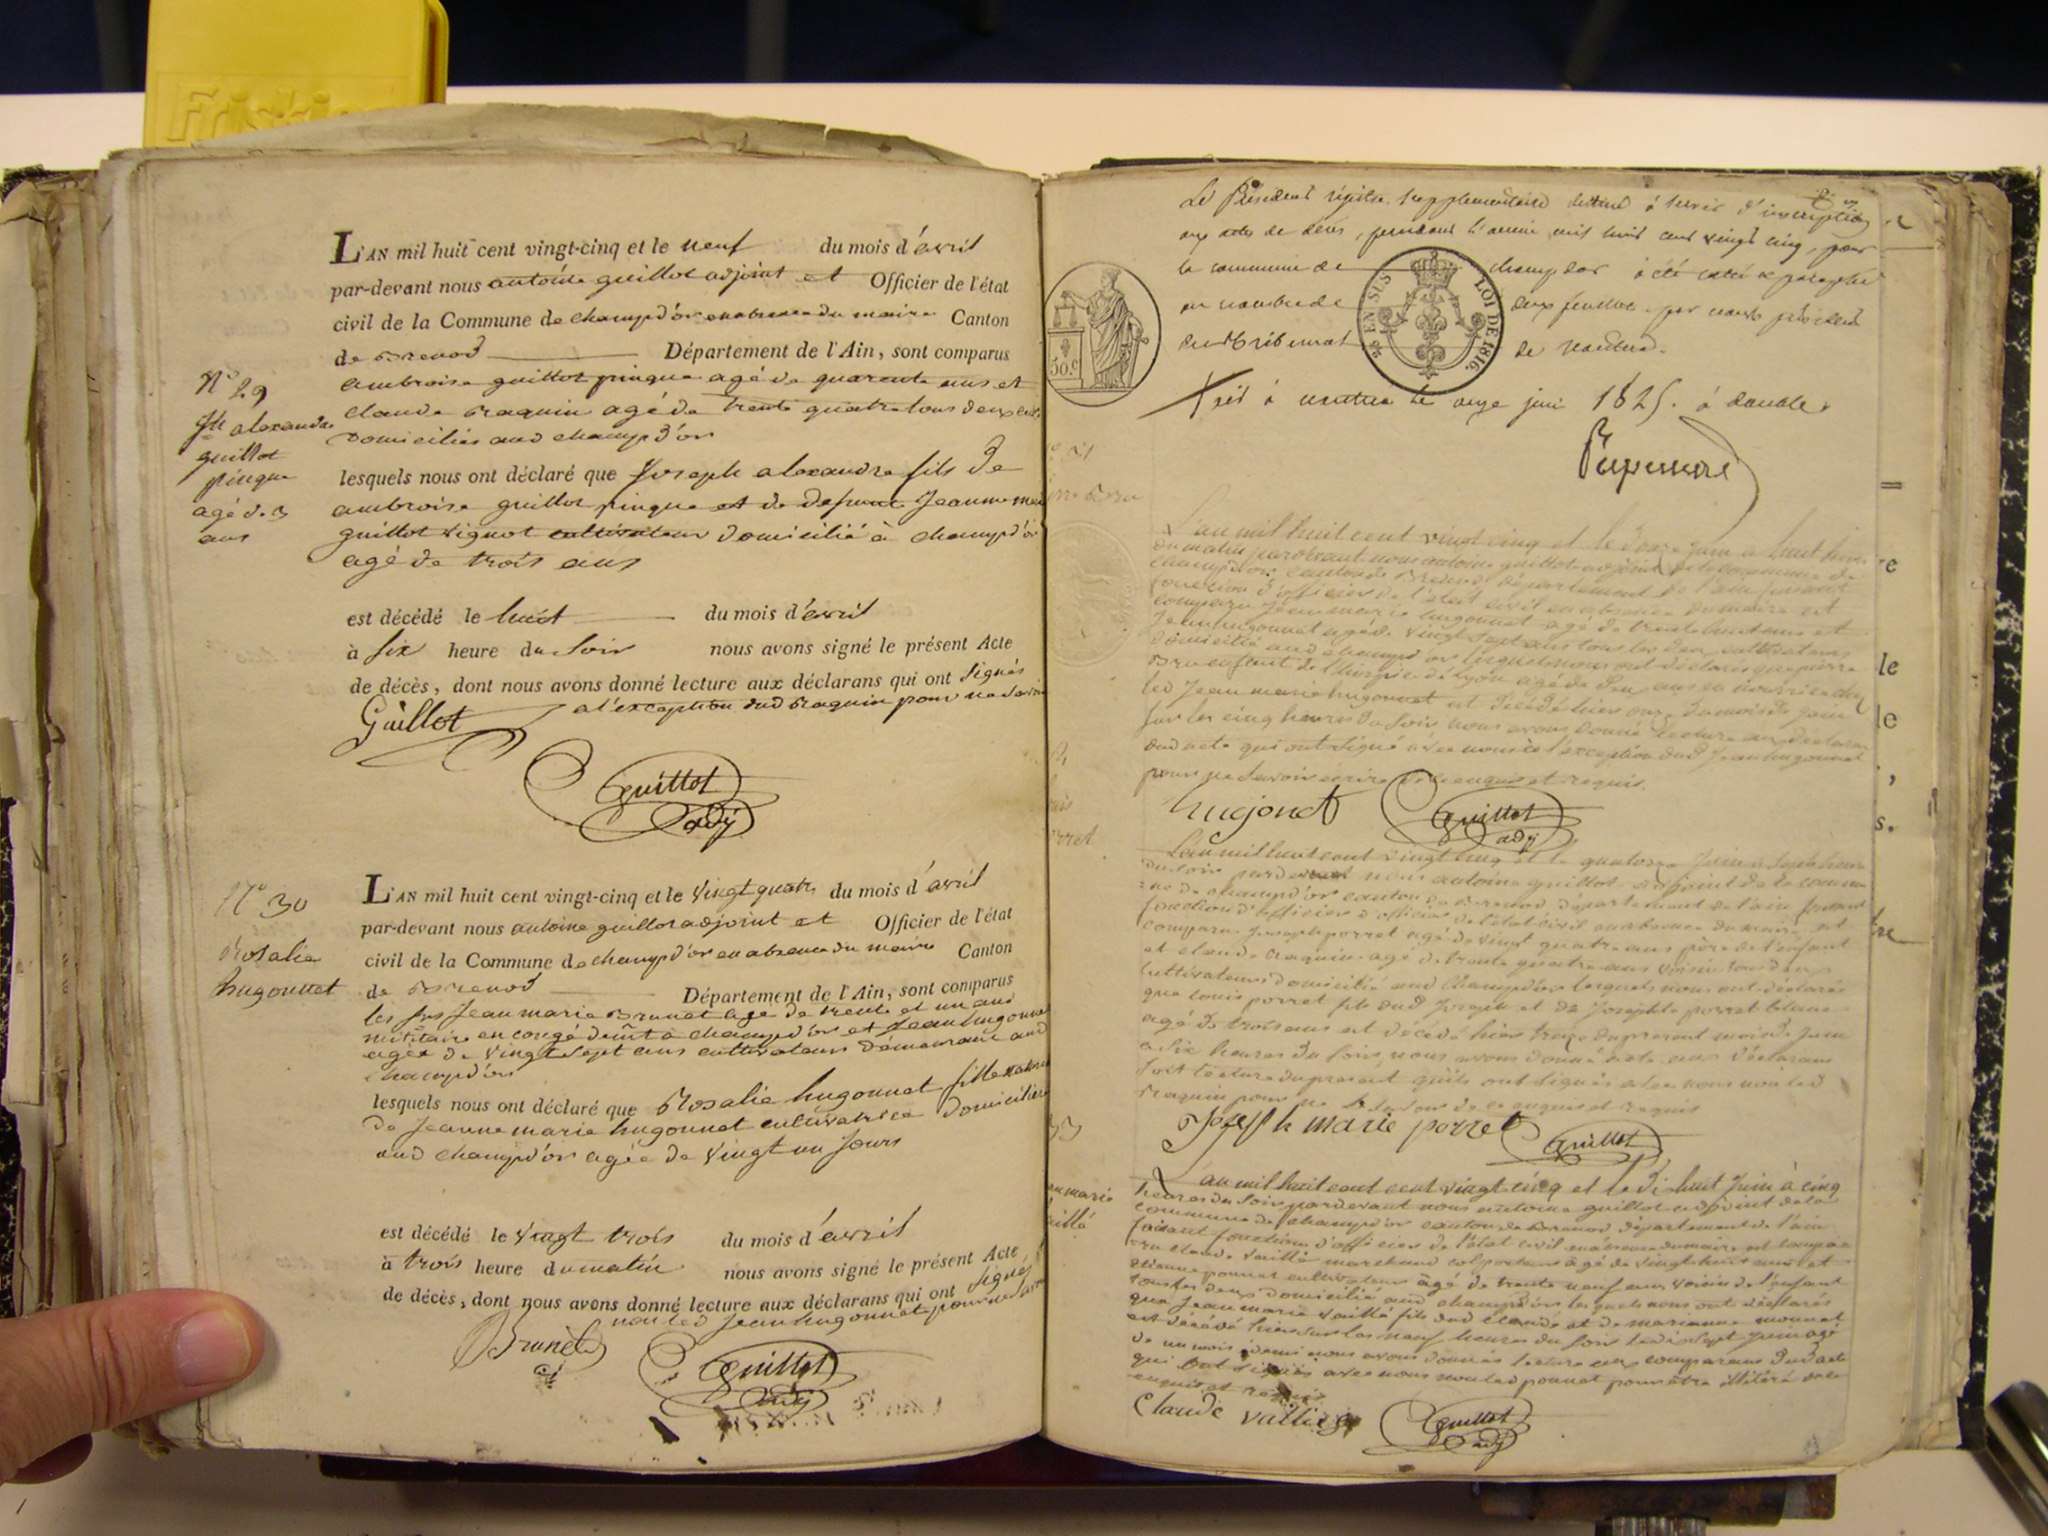 Friskies
L'AN mil huit cent vingt-cinq et le neuf du mois d'avril
par-devant nous antoine guillot adjoint et Officier de l'état
civil de la Commune de champd'or en absence du maire Canton
de Brenod Département de l'Ain, sont comparus
ambroise guillot pingue agé de quarente ans et
claude Braquin agé de trente quatre tous deux cult.
domiciliés aud champd'or
N° 29
Jh alexandre
guillot
pingue
agé de 3
ans
lesquels nous ont déclaré que Joseph alexandre fils de
ambroise guillot pingue et de defunte Jeanne marie
guillot vignot cultivateur domicilié à champd'or
agé de trois ans
est décédé le huit du mois d'avril
à six heure du soir nous avons signé le présent Acte
de décès, dont nous avons donné lecture aux déclarans qui ont signés
a l'exception dud Braquin pour ne savoir
Guillot
guillot
adj
N° 30
Rosalie
hugonnet
L'AN mil huit cent vingt-cinq et le vingt quatre du mois d'avril
par-devant nous antoine guillot adjoint et Officier de l'état
civil de la Commune de champd'or en absence du maire Canton
de Brenod Département de l'Ain, sont comparus
les srs Jean marie Brunet agé de trente et un ans
militaire en congé à champd'or et Jean hugonnet
agé de vingt sept ans cultivateurs demeurant aud
champd'or
lesquels nous ont déclaré que Rosalie hugonnet fille naturelle
de Jeanne marie hugonnet cultivatrice domiciliée
aud champd'or agée de vingt un jours
est décédé le vingt trois du mois d'avril
à trois heure du matin nous avons signé le présent Acte
de décès, dont nous avons donné lecture aux déclarans qui ont signés
non led Jean hugonnet pour ne savoir
Brunet
guillot
adj
Le Présent registre supplémentaire destiné à servir d'inscription
aux actes de décès, pendant l'année mil huit cent vingt cinq, pour
la commune de champdor a été coté et paraphé
au nombre de deux feuilles par nous président
du tribunal de nantua.
EN SUS LOI DE 1816.
50.c
fait à nantua le onze juin 1825. à double
L'an mil huit cent vingt cinq et le douze juin à huit heures
du matin pardevant nous antoine guillot adjoint de la commune de
champd'or canton de Brenod département de l'ain faisant
fonction d'officier de l'état civil en absence du maire est
comparu Jean marie hugonnet agé de trente huit ans et
Jean hugonnet agé de vingt sept ans tous les deux cultivateurs
domicilié aud champd'or lesquels nous ont déclarés que pierre
Bru enfant de l'hospice de lyon agé de deux ans en nourrice chez
led Jean marie hugonnet est décédé hier onze du mois de juin
sur les cinq heures du soir nous avons donné lecture aux déclarans
dud acte qui ont signé avec nous à l'exception dud Jean hugonnet
pour ne savoir écrire de ce enquis et requis.
hugonet
guillot
adj
L'an mil huit cent vingt cinq et le quatorze Juin à sept heures
du soir pardevant nous antoine guillot adjoint de la commu
ne de champd'or canton de Brenod département de l'ain faisant
fonction d'officier d'officier de l'état civil en absence du maire est
comparu Joseph porret agé de vingt quatre ans père de l'enfant
et claude Braquin agé de trente quatre ans voisin tous deux
cultivateurs domicilié aud champd'or lesquels nous ont déclarés
que louis porret fils dud Joseph et de Josephte porret blanc
agé de trois ans est décédé hier treize du présent mois de juin
a six heures du soir, nous avons donné acte aux déclarans
soit lecture du présent qu'ils ont signés avec nous non led
Braquin pour ne le savoir de ce enquis et requis
Joseph marie porret
guillot
L'an mil huit cent cent vingt cinq et le dix huit Juin à cinq
heures du soir pardevant nous antoine guillot adjoint de la
commune de champd'or canton de Brenod département de l'ain
faisant fonction d'officier de l'état civil en absence du maire est compa
ru claude vaillé marchand colporteur agé de vingt huit ans et
etienne ponnet cultivateur âgé de trente neuf ans voisin de l'enfant
tous les deux domicilié aud champd'or lesquels nous ont déclarés
que Jean marie vaillé fils dud claude et de marianne monnet
est décédé hier sur les neuf heures du soir le dix sept Juin agé
de un mois demi nous avons donnés lecture aux comparans dud acte
qui ont signés avec nous non led ponnet pour être illitéré de ce
enquis et requis
Claude vaillé
guillot
adj